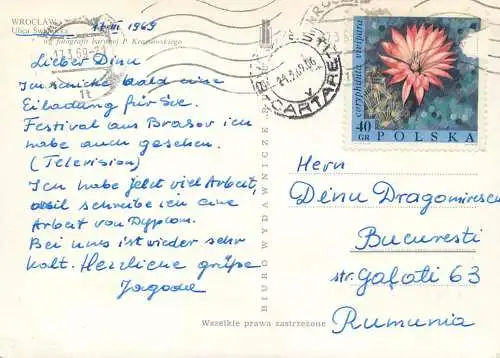 WROCŁAW
17 III 1969
wg fotografii barwnej P. Krassowskiego
17.3.69-2
Lieber Dinu
Ich schicke bald eine
Eiladung für Sie.
Festival aus Brasov ich
habe auch gesehen.
(Television)
Ich habe jetzt viel Arbeit,
weil schreibe ich eine
Arbeit von Dyplom.
Bei uns ist wieder sehr
kalt. Herzliche grüße
Jagoda
BIURO WYDAWNICZE
Wszelkie prawa zastrzeżone
CARTARE
coryphanta vivipara
40
GR
POLSKA
Hern
Dinu Dragomirescu
Bucuresti
str. Galati 63
Rumunia